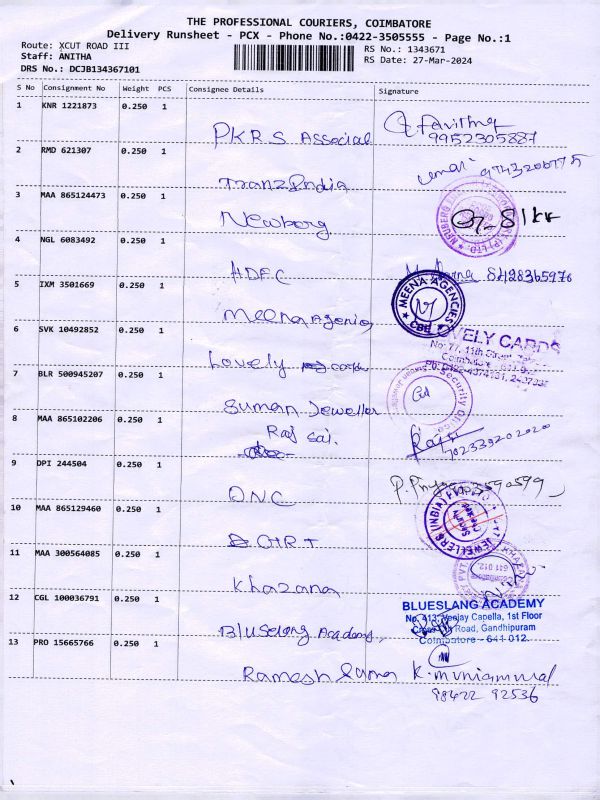 THE PROFESSIONAL COURIERS, COIMBATORE
Delivery Runsheet - PCX - Phone No.:0422-3505555 - Page No.:1
Route: XCUT ROAD III
RS No.: 1343671
Staff: ANITHA
RS Date: 27-Mar-2024
DRS No.: DCJB134367101
S No Consignment No Weight PCS Consignee Details Signature
1 KNR 1221873 0.250 1 PKRS Associal
9952305887
2 RMD 621307 0.250 1 Tranz India
3 MAA 865124473 0.250 1 Newborg
4 NGL 6083492 0.250 1 HDFC 8428365976
5 IXM 3501669 0.250 1 Meena Agencies
MEENA AGENCIES CBE
6 SVK 10492852 0.250 1 Lovely
LOVELY CARDS
No: 77, 11th Street
Coimbatore
7 BLR 500945207 0.250 1 Suman Jeweller
Security Office
8 MAA 865102206 0.250 1 Raj Sai.
9 DPI 244504 0.250 1 ONC
10 MAA 865129460 0.250 1 GRT
JEWELLERS (INDIA)
11 MAA 300564085 0.250 1 Khazana
641 012
12 CGL 100036791 0.250 1 Bluselang Academy,
BLUESLANG ACADEMY
No. 413, Capella, 1st Floor
Road, Gandhipuram
Coimbatore - 641 012.
13 PRO 15665766 0.250 1 Ramesh K. muniammal
98422 92536